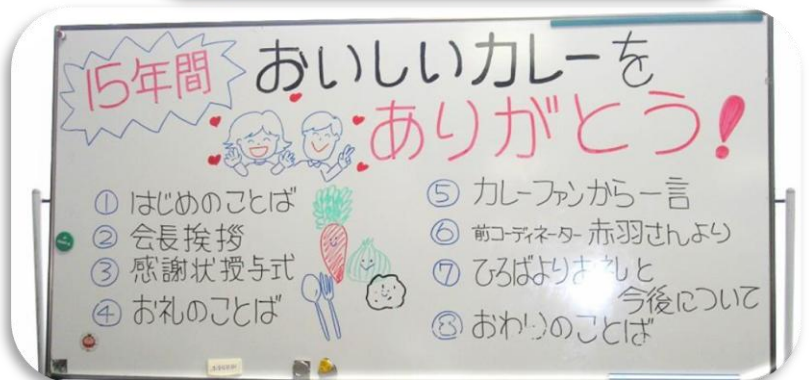 15年間
おいしいカレーを
ありがとう!
① はじめのことば
② 会長挨拶
③ 感謝状授与式
④ お礼のことば
⑤ カレーファンから一言
⑥ 前コーディネーター赤羽さんより
⑦ ひろばよりお礼と
今後について
⑧ おわりのことば